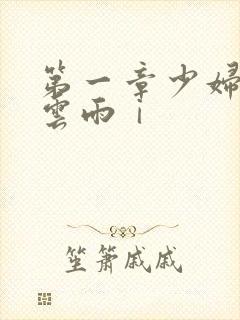 第一章少婦
雲雨1
笙簫戚戚